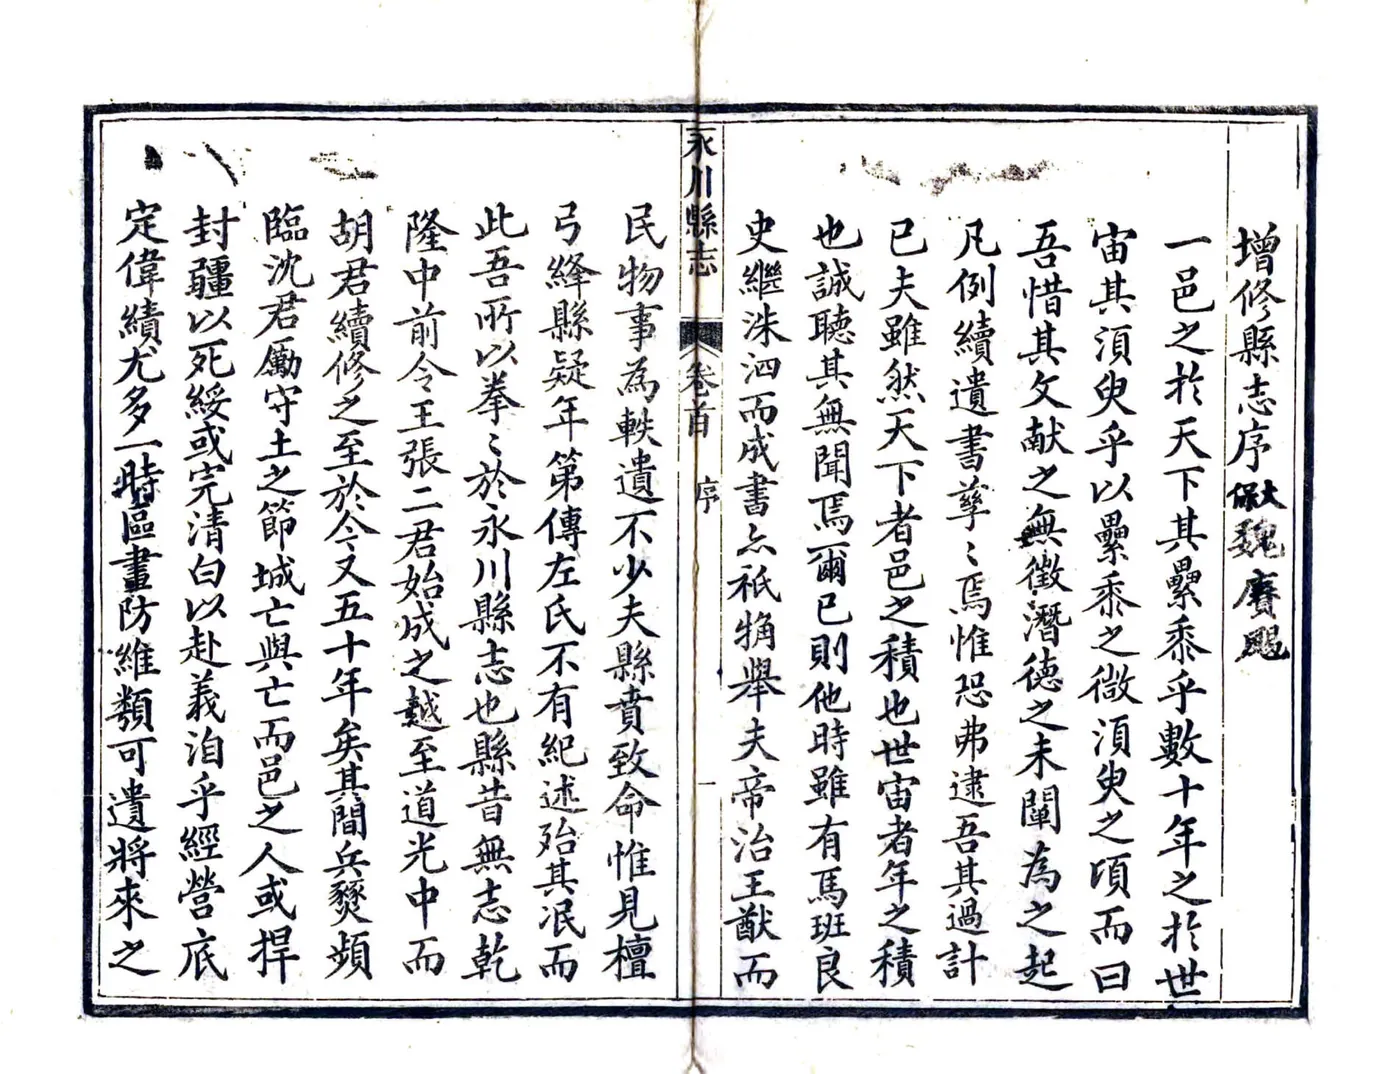 增修縣志序 大保 魏賡颺
一邑之於天下其纍黍乎數十年之於世
宙其須臾乎以纍黍之微須臾之頃而曰
吾惜其文献之無徵潛德之未闡為之起
凡例續遺書孳〻焉惟恐弗逮吾其過計
已夫雖然天下者邑之積也世宙者年之積
也誠聽其無聞焉爾已則他時雖有馬班良
史繼洙泗而成書亦祇觕舉夫帝治王猷而
永川縣志 卷首 序 一
民物事為軼遺不少夫縣賁致命惟見檀
弓絳縣疑年第傳左氏不有紀述殆其泯而
此吾所以拳〻於永川縣志也縣昔無志乾
隆中前令王張二君始成之越至道光中而
胡君續修之至於今又五十年矣其間兵燹頻
臨沈君勵守土之節城亡與亡而邑之人或捍
封疆以死綏或完清白以赴義洎乎經營底
定偉績尤多一時區畫防維類可遺將來之